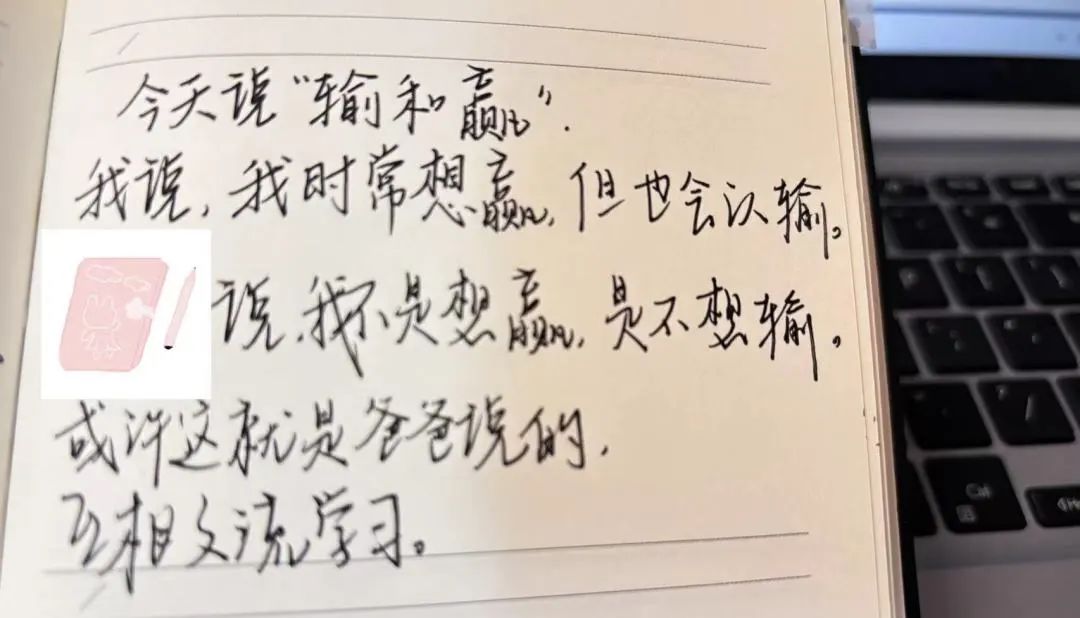 今天说“输和赢”.
我说,我时常想赢,但也会认输。
说,我不是想赢,是不想输。
或许这就是爸爸说的,
互相交流学习。
Ctrl